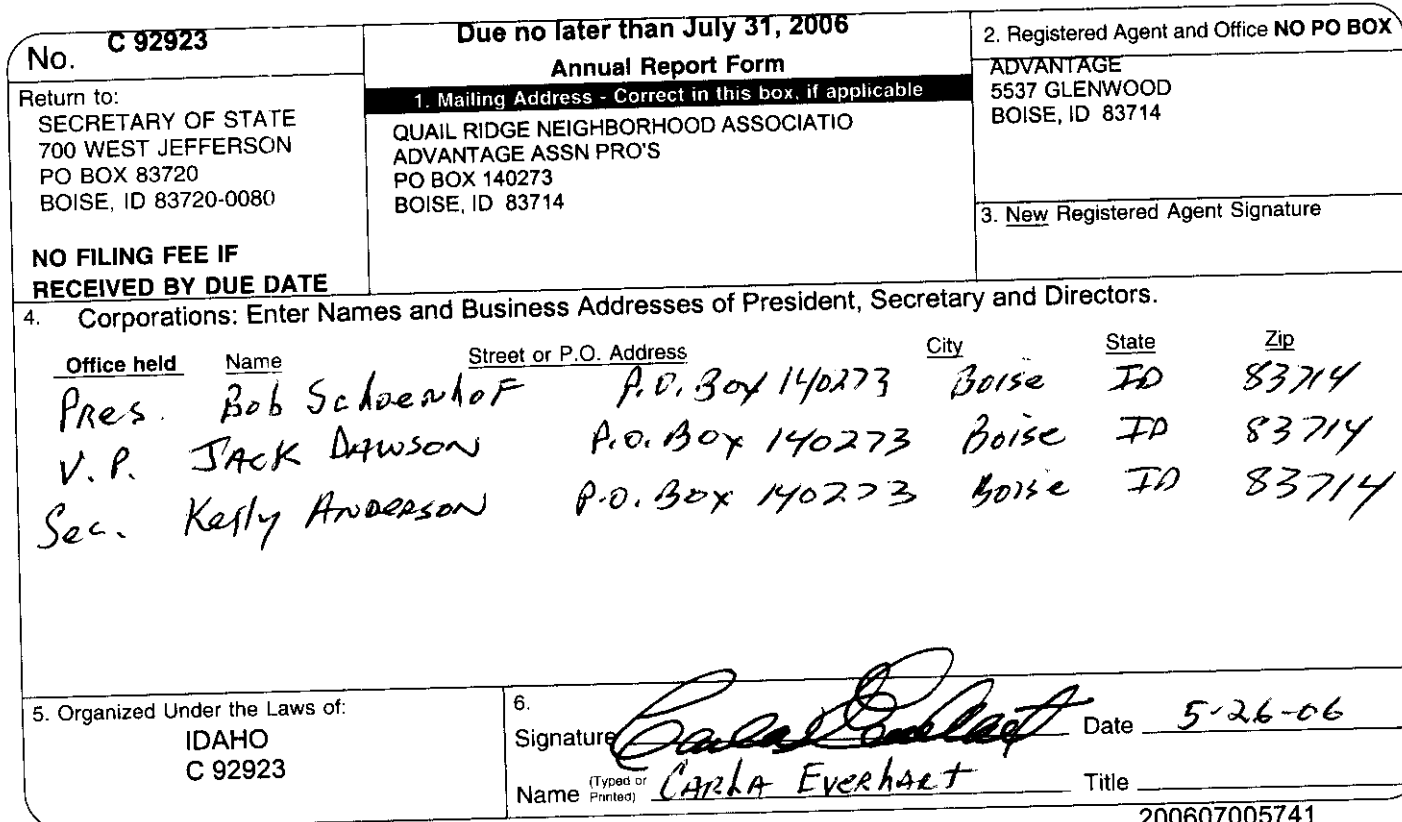 No. C 92923
Return to:
SECRETARY OF STATE
700 WEST JEFFERSON
PO BOX 83720
BOISE, ID 83720-0080
NO FILING FEE IF
RECEIVED BY DUE DATE
Due no later than July 31, 2006
Annual Report Form
1. Mailing Address - Correct in this box, if applicable
QUAIL RIDGE NEIGHBORHOOD ASSOCIATIO
ADVANTAGE ASSN PRO'S
PO BOX 140273
BOISE, ID 83714
2. Registered Agent and Office NO PO BOX
ADVANTAGE
5537 GLENWOOD
BOISE, ID 83714
3. New Registered Agent Signature
4. Corporations: Enter Names and Business Addresses of President, Secretary and Directors.
Office held Name Street or P.O. Address City State Zip
Pres. Bob Schoenhof P.O. Box 140273 Boise ID 83714
V.P. JACK DAWSON P.O. Box 140273 Boise ID 83714
Sec. Kelly ANDERSON P.O. Box 140273 Boise ID 83714
5. Organized Under the Laws of:
IDAHO
C 92923
6.
Signature Carla Everhart Date 5-26-06
Name (Typed or Printed) CARLA EVERHART Title
200607005741